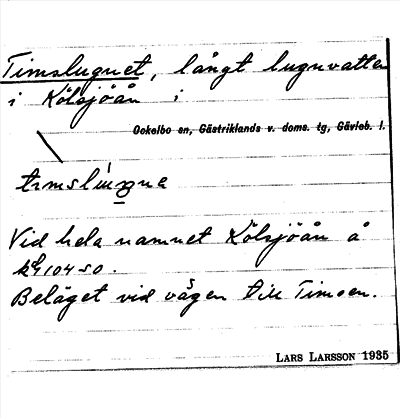 Timslugnet, långt lugnvatten
i Kölsjöån i
Ockelbo sn, Gästriklands v. doms. tg, Gävleb. l.
Vid hela namnet Kölsjöån å
104 SO.
Beläget vid vägen till Timsen.
LARS LARSSON 1935